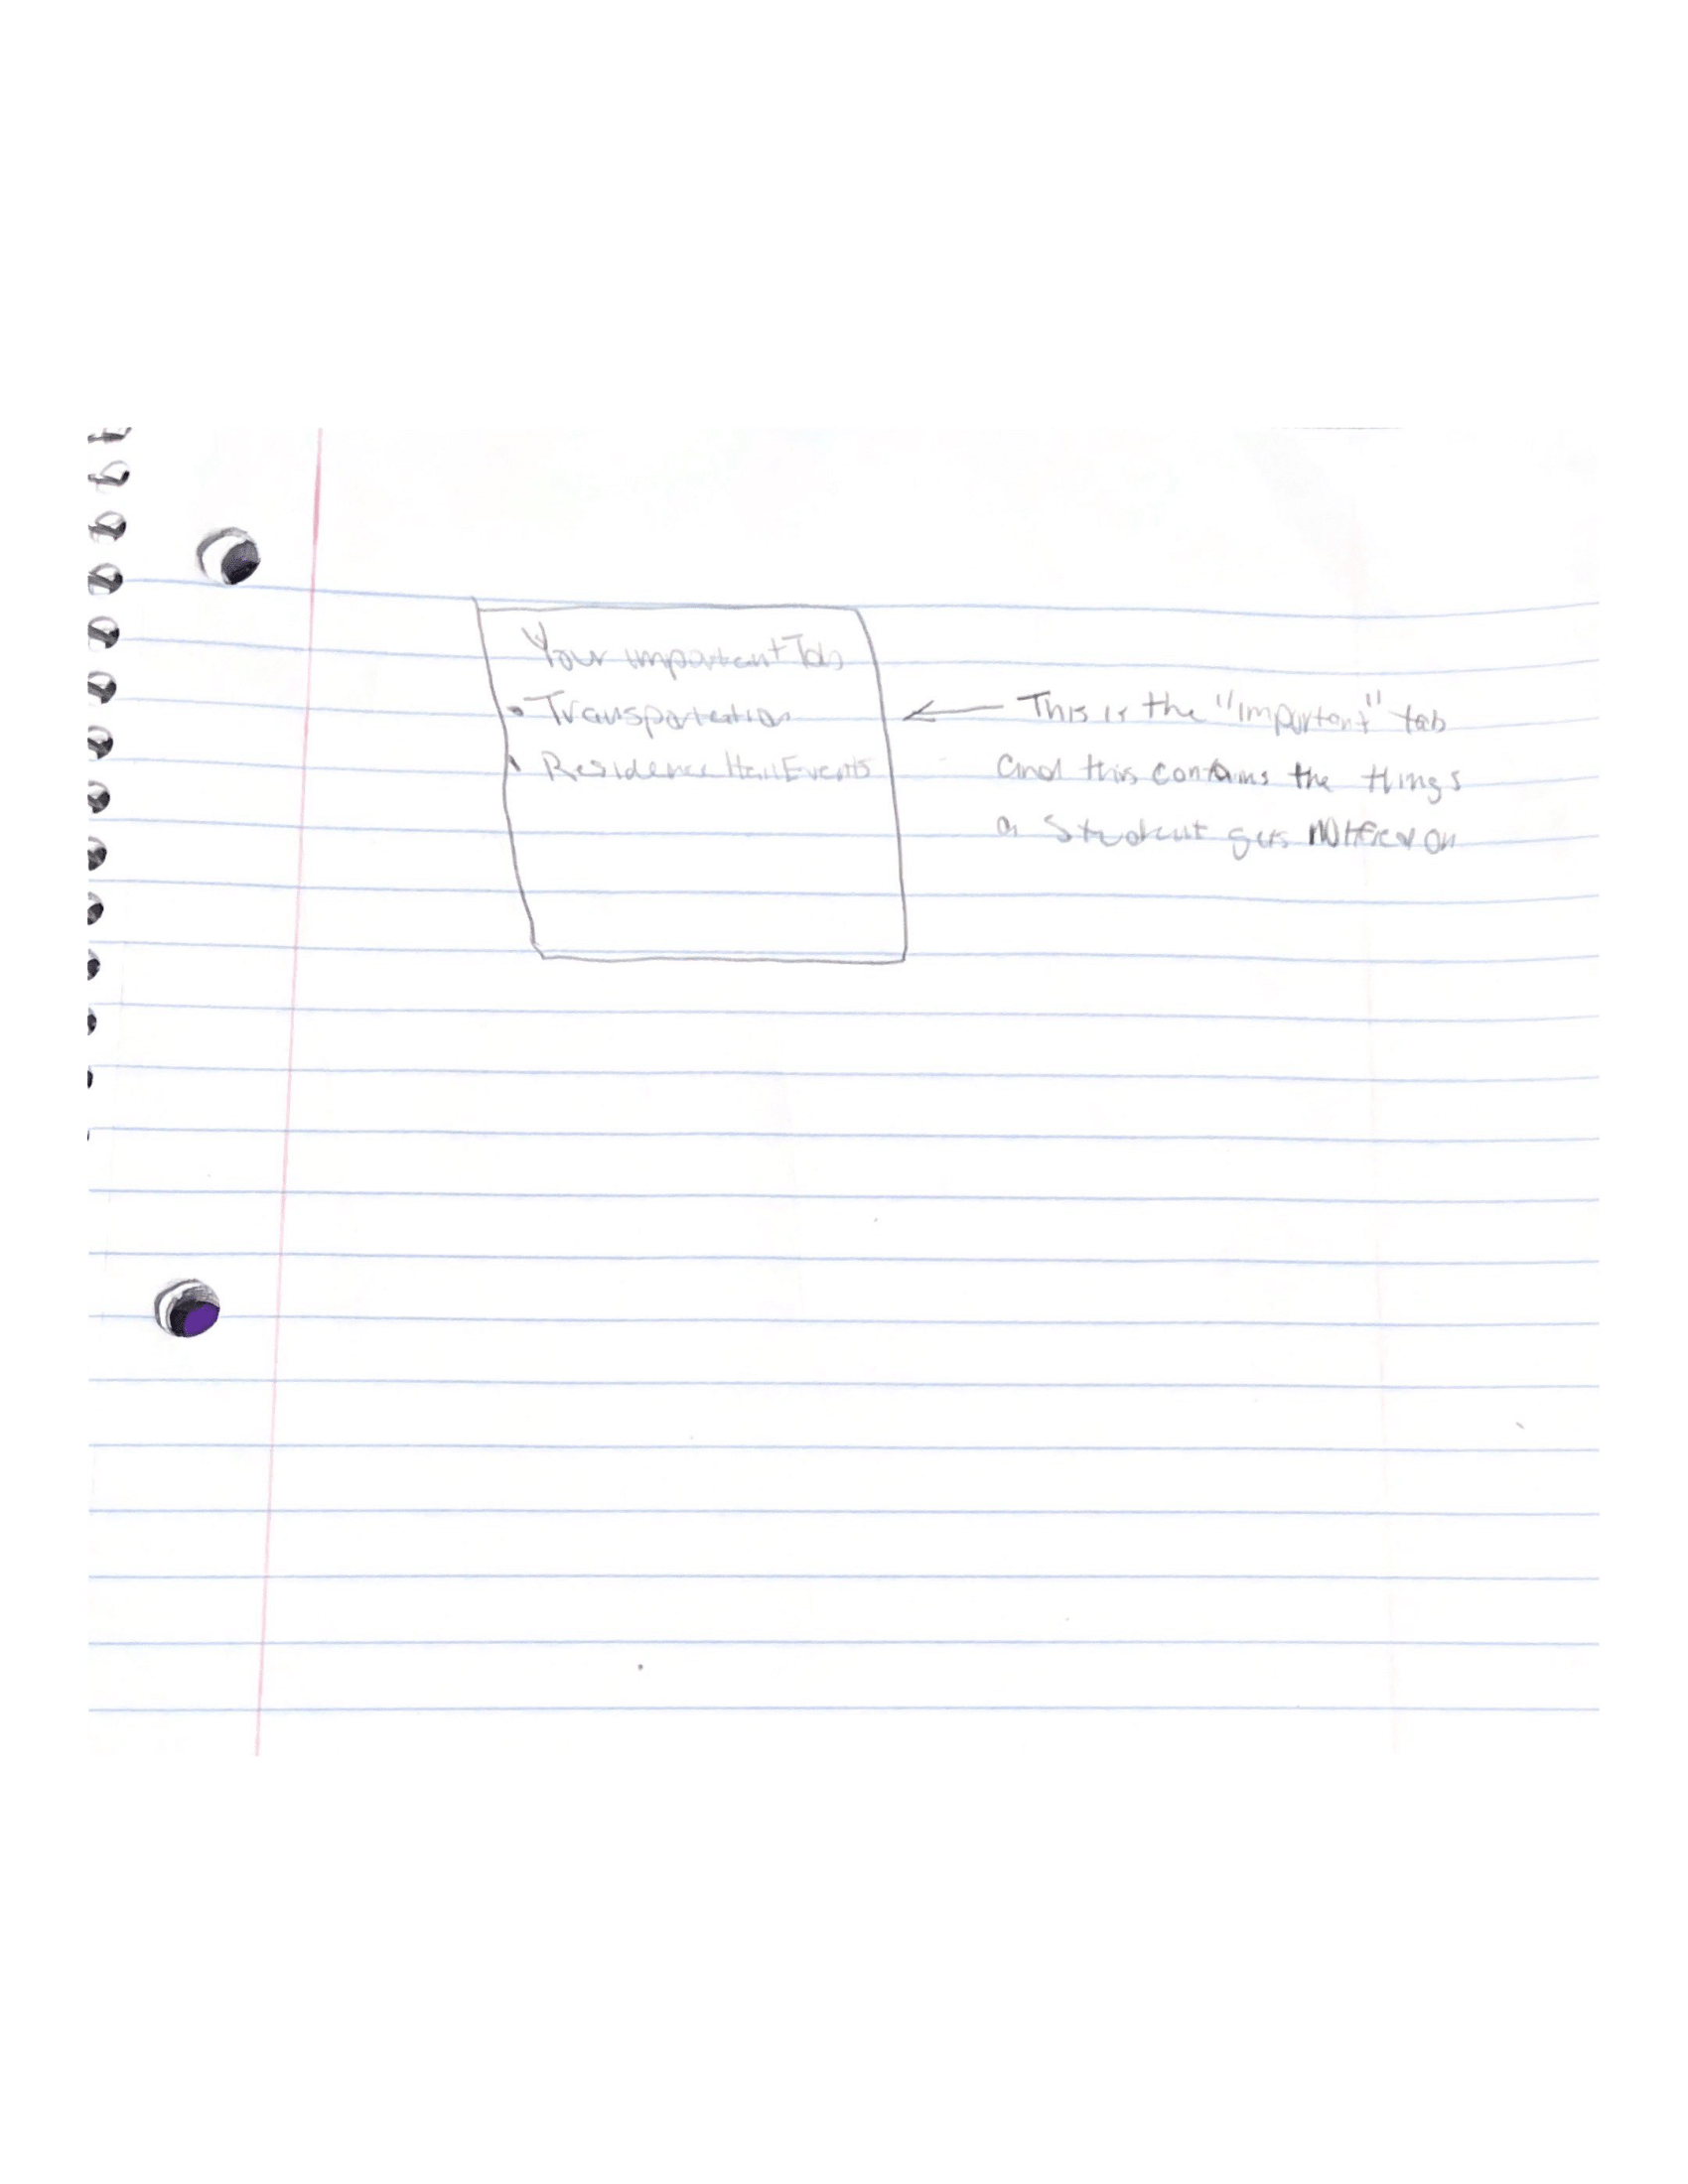 Your important Tab
• Transportation
• Residence Hall Events
This is the "important" tab
and this contains the things
a student gets notified on